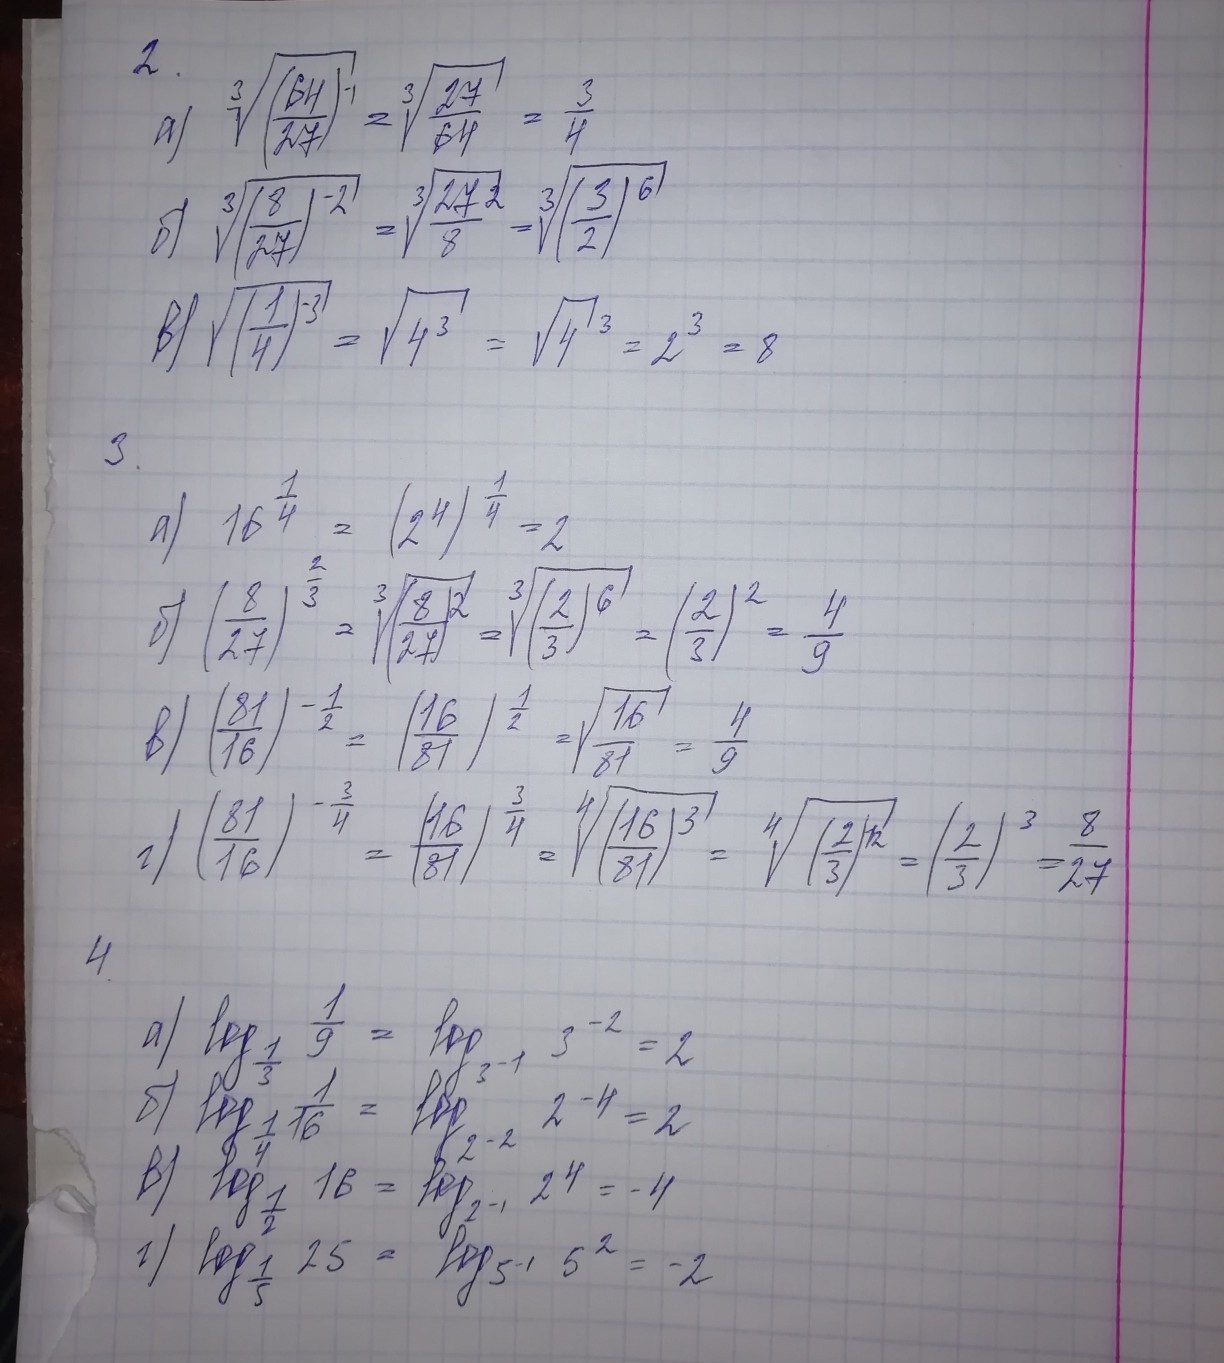 2.
а) ∛((64/27)^-1) = ∛(27/64) = 3/4
б) ∛((8/27)^-2) = ∛(27/8^2) = ∛((3/2)^6)
в) √((1/4)^-3) = √(4^3) = √4^3 = 2^3 = 8
3.
а) 16^(1/4) = (2^4)^(1/4) = 2
б) (8/27)^(2/3) = ∛((8/27)^2) = ∛((2/3)^6) = (2/3)^2 = 4/9
в) (81/16)^(-1/2) = (16/81)^(1/2) = √(16/81) = 4/9
г) (81/16)^(-3/4) = (16/81)^(3/4) = ∜((16/81)^3) = ∜((2/3)^12) = (2/3)^3 = 8/27
4.
а) log_(1/3) 1/9 = log_(3^-1) 3^-2 = 2
б) log_(1/4) 1/16 = log_(2^-2) 2^-4 = 2
в) log_(1/2) 16 = log_(2^-1) 2^4 = -4
г) log_(1/5) 25 = log_(5^-1) 5^2 = -2